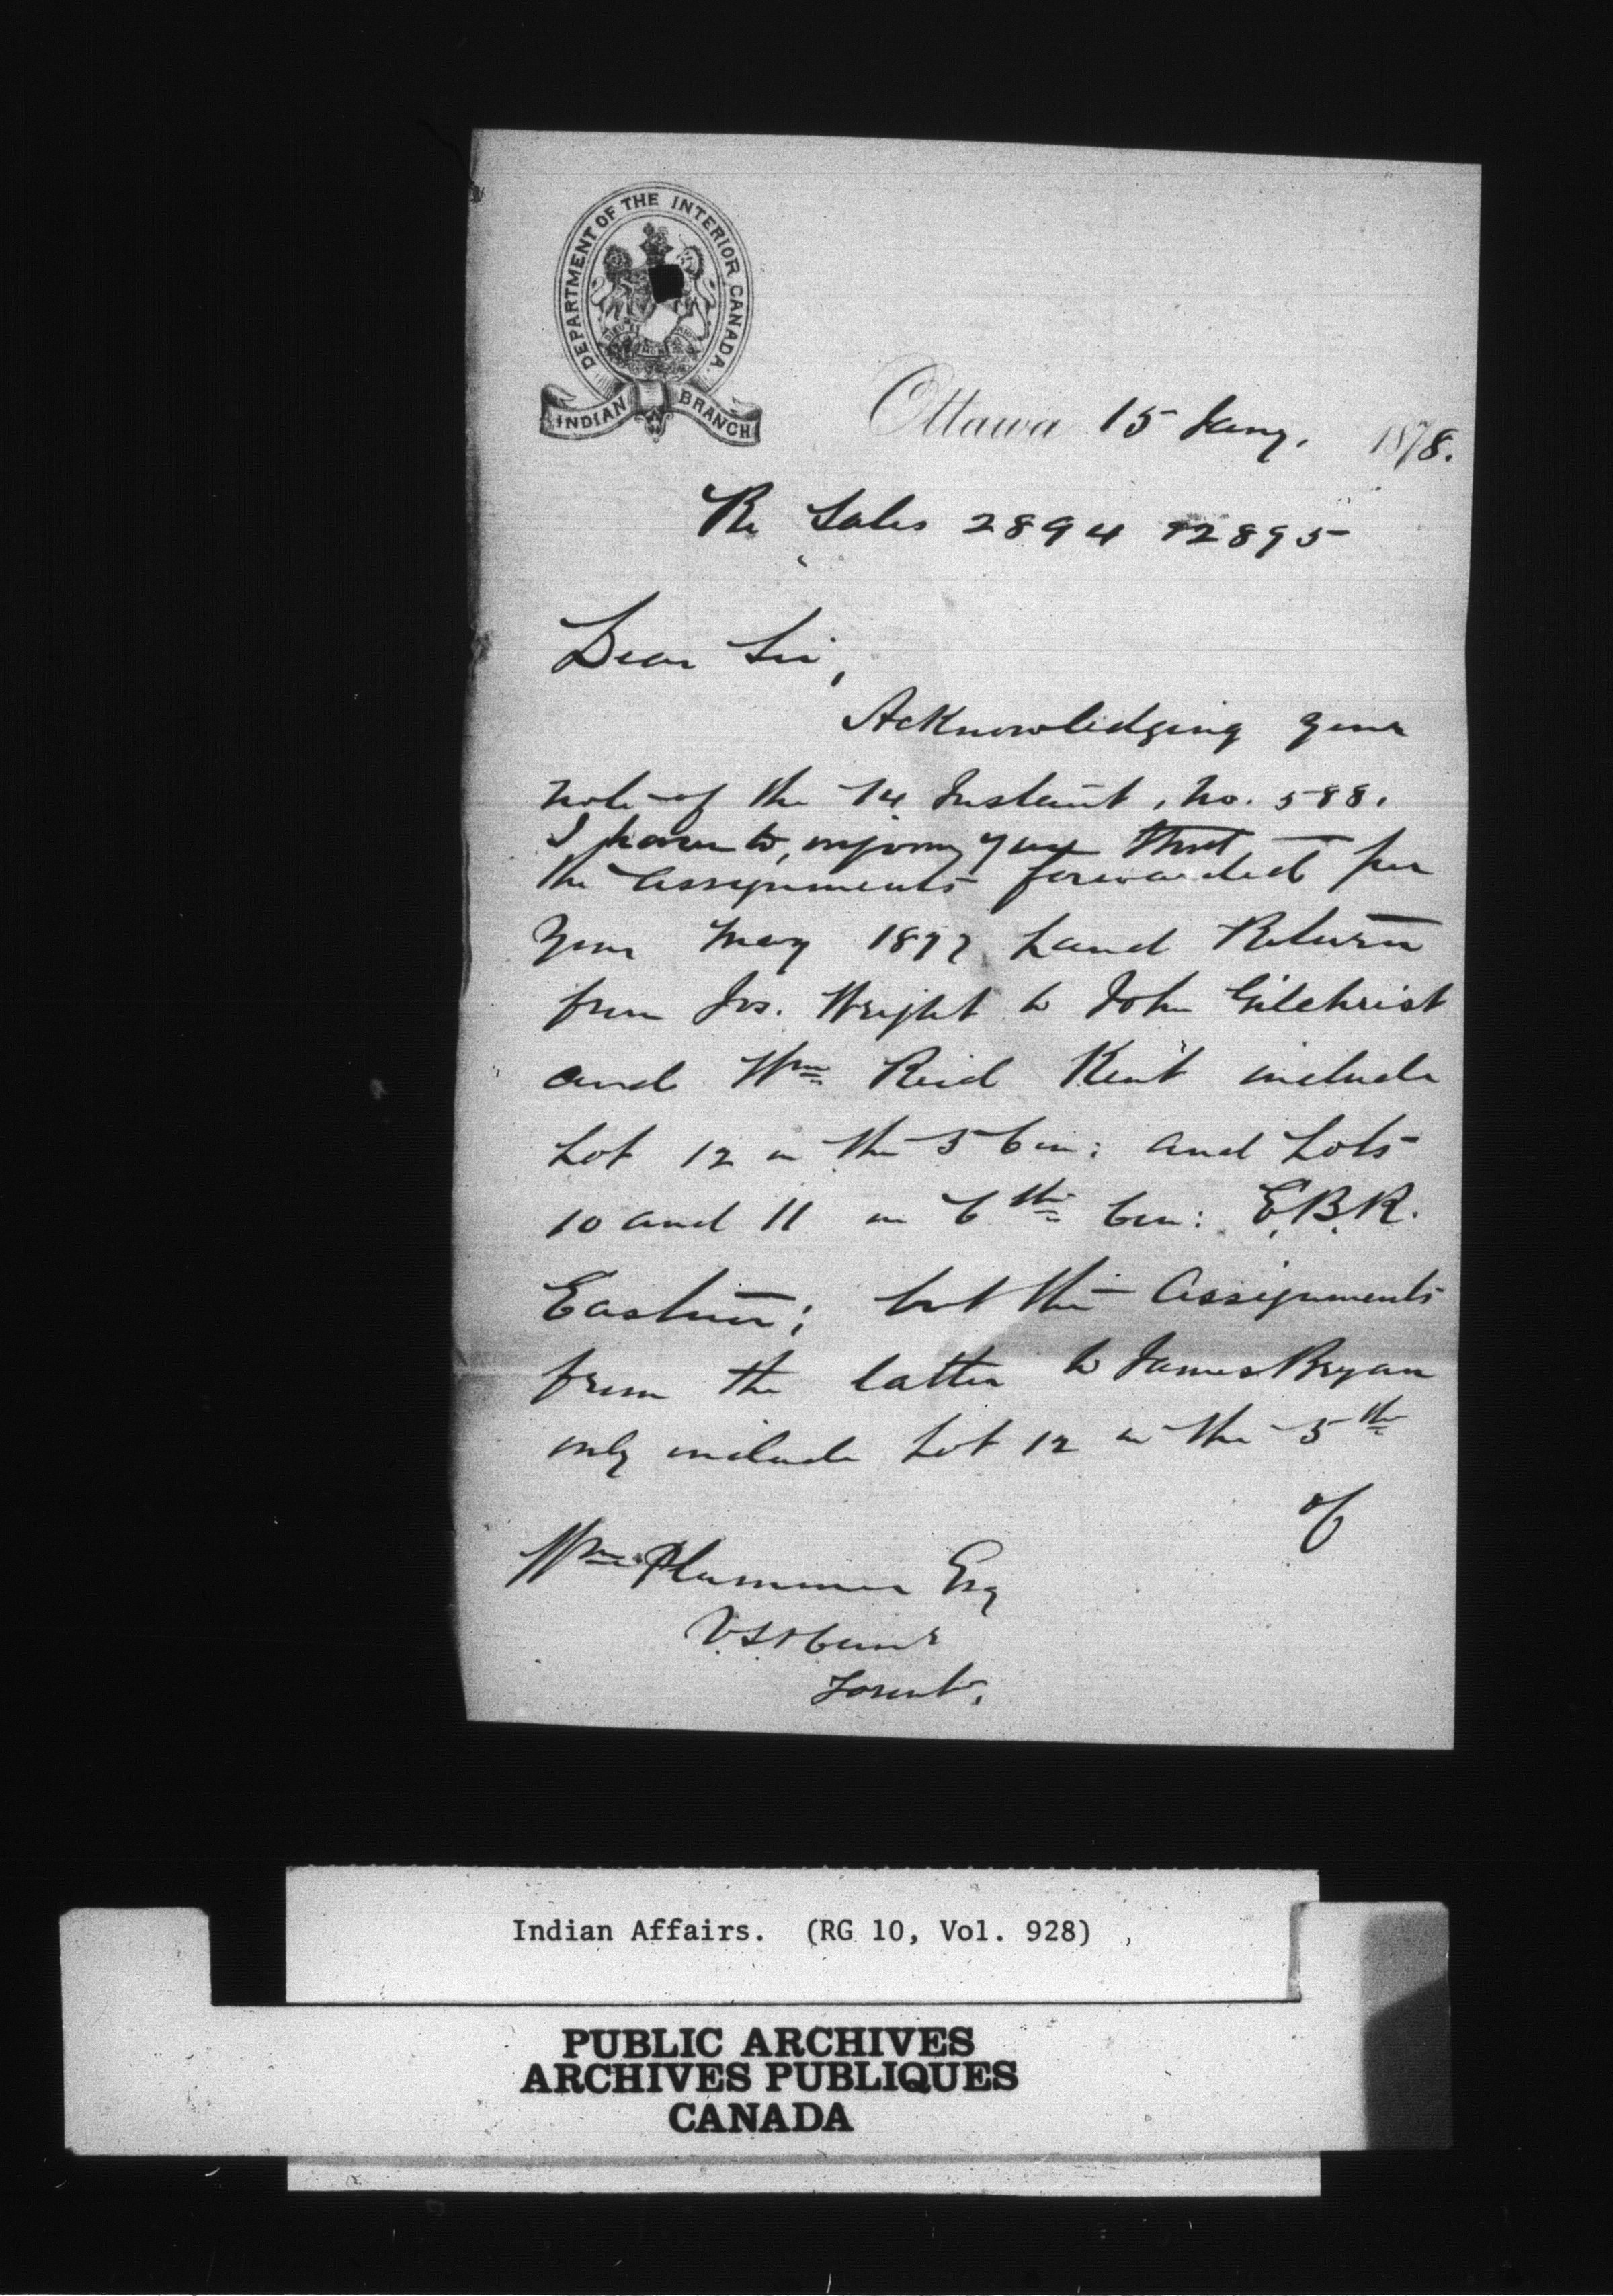 DEPARTMENT OF THE INTERIOR CANADA.
INDIAN BRANCH
Ottawa 15 Jany. 1878.
Re Sales 2894 & 2895
Dear Sir,
Acknowledging your
note of the 14 Instant, No. 588.
I have to inform you that
the assignments forwarded per
your May 1877 Land Return
from Jos. Wright to John Gilchrist
and Wm Reid Kent include
Lot 12 in the 5 Con: and Lots
10 and 11 in 6th Con: E.B.R.
Eastnor; but the Assignments
from the latter to James Bryan
only include Lot 12 in the 5th
of
Wm Plummer Esq
V.S. & Comr
Toronto.
Indian Affairs. (RG 10, Vol. 928)
PUBLIC ARCHIVES
ARCHIVES PUBLIQUES
CANADA